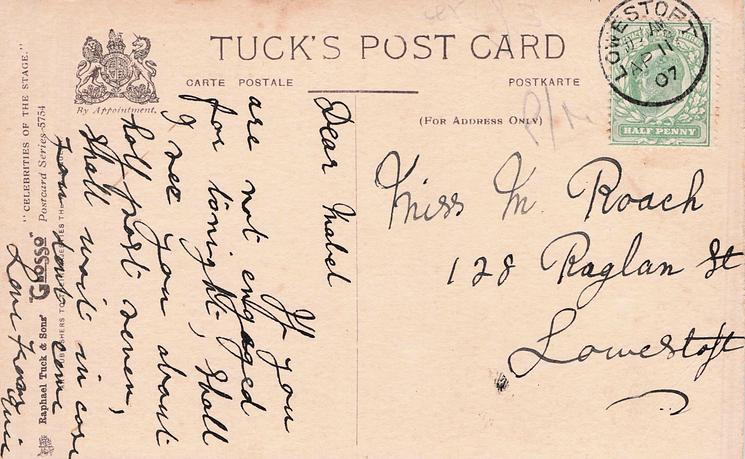 TUCK'S POST CARD
CARTE POSTALE
POSTKARTE
By Appointment.
(For Address Only)
LOWESTOFT
AP 11
07
HALF PENNY
P/M
Miss M. Roach
128 Raglan St
Lowestoft
Dear Mabel
If you
are not engaged
for tonight, shall
I see you about
half past seven,
shall wait in case
you don't come
Love from
"CELEBRITIES OF THE STAGE."
Postcard Series 5754
"GLOSSO"
Raphael Tuck & Sons'